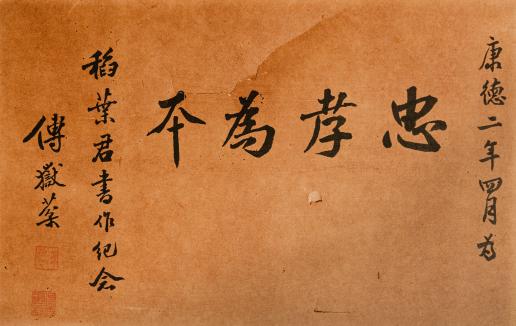 康德二年四月為
忠孝為本
稻葉君書作紀念
傅嶽棻